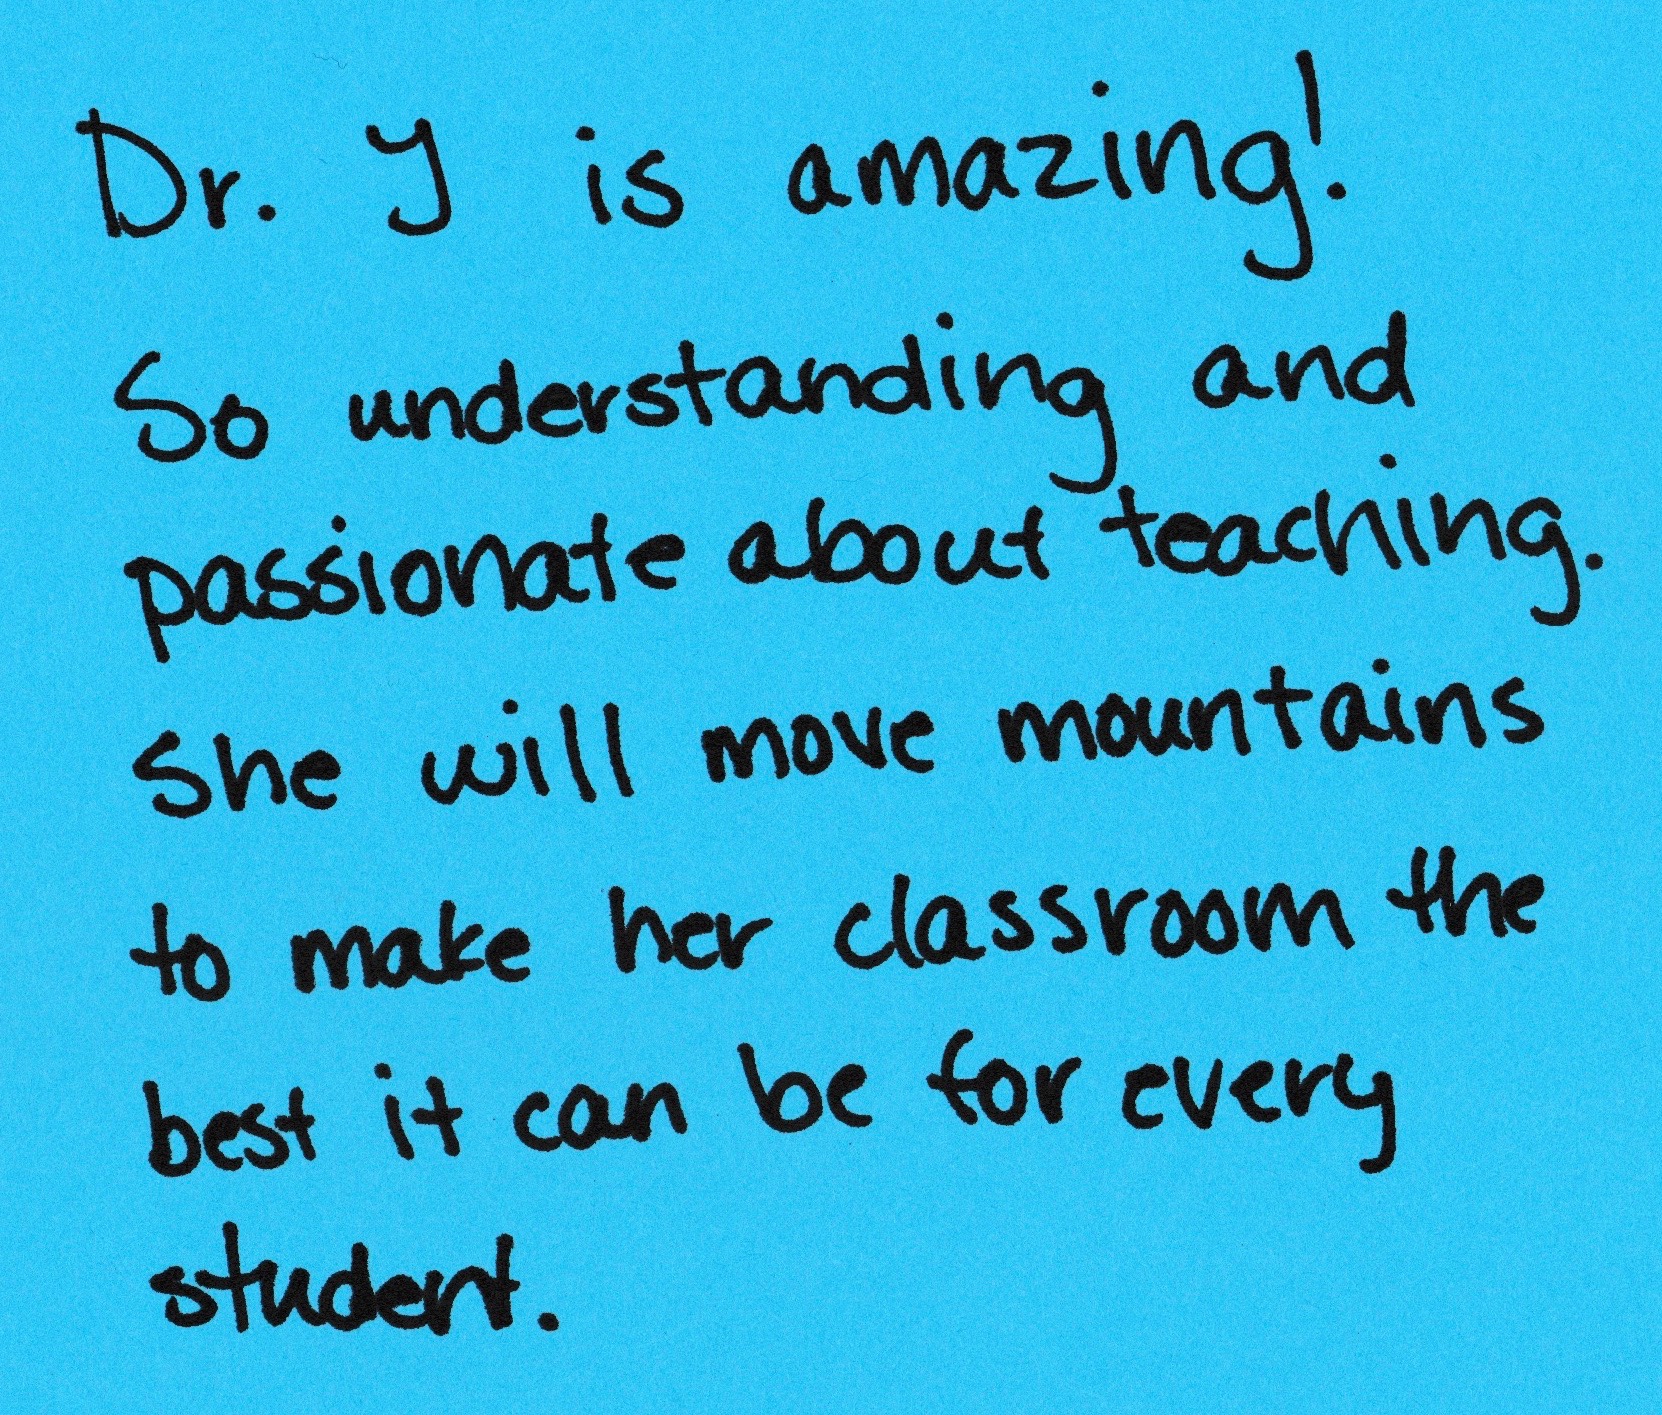 Dr. Y is amazing!
So understanding and
passionate about teaching.
She will move mountains
to make her classroom the
best it can be for every
student.